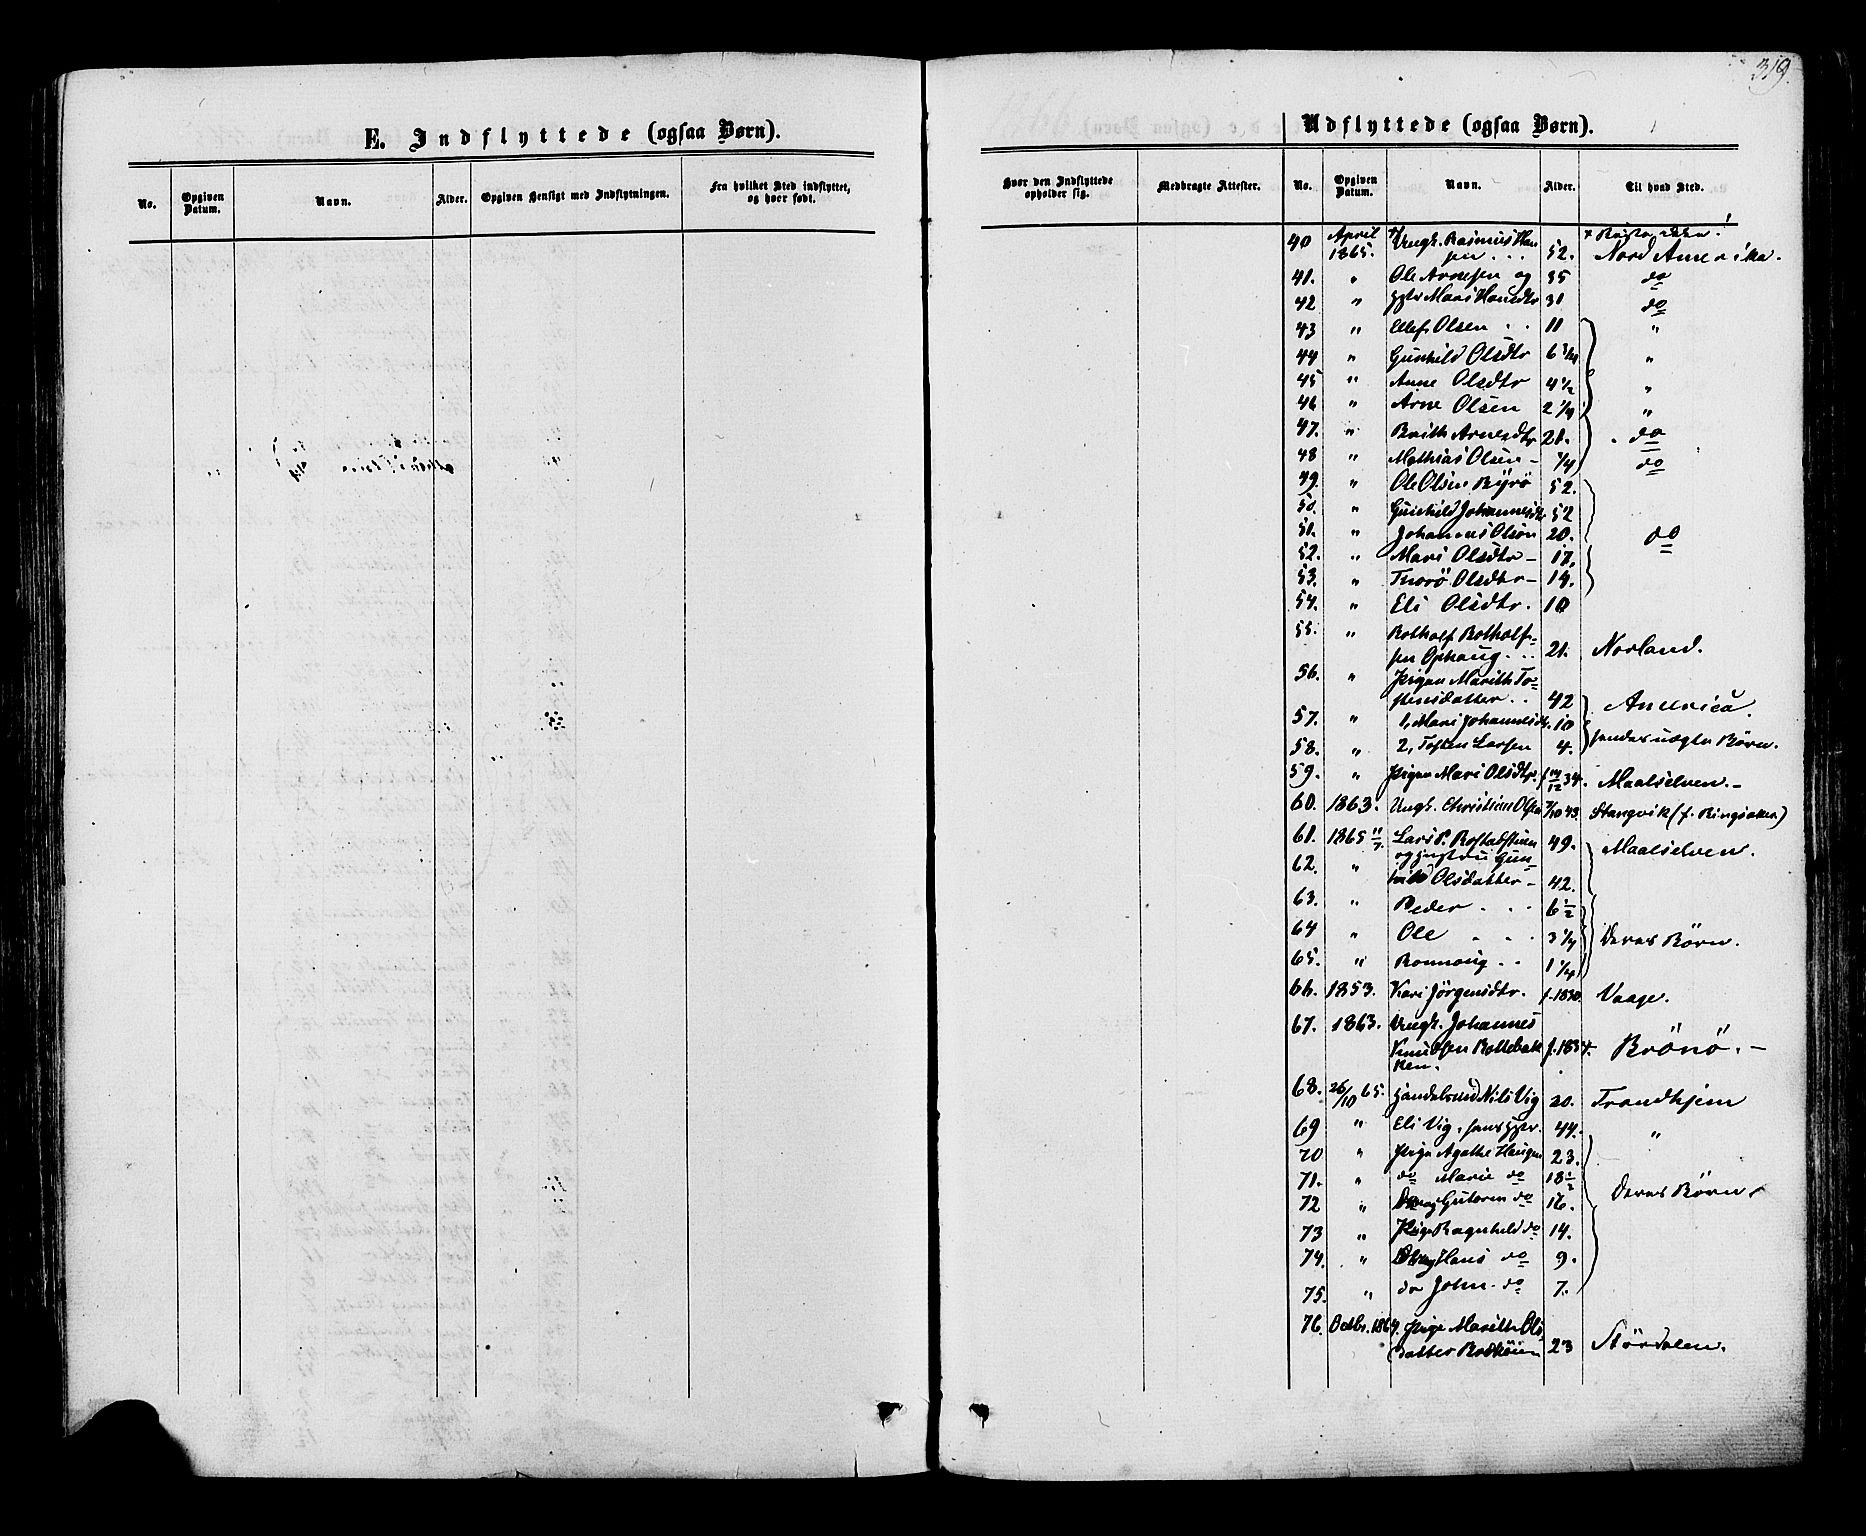 319.
E. Indflyttede (ogsaa Børn).
No.
Opgiven Datum.
Navn.
Alder.
Opgiven Hensigt med Indflytningen.
Fra hvilket Sted indflyttet, og hvor født.
Udflyttede (ogsaa Børn).
Hvor den Indflyttede opholder sig.
Medbragte Attester.
No.
Opgiven Datum.
Navn.
Alder.
Til hvad Sted.
40 April 1865. Ungk. Rasmus Han
sen . . . 52. Nord Amerika.
41. " Ole Arnesen og 35 do
42 " Mari Hansdtr 31 do
43 " Ellef Olsen . . 11 "
44 " Gunhild Olsdtr 6 "
45 " Anne Olsdtr 4 1/2 "
46 " Arne Olsen 2 1/4 "
47. " Brith Arnesdtr 21. do
48 " Mathias Olsen - 1/4 do
49. " Ole Olsen Byrö 52.
50. " Gunhild Johannesdtr 52
51. " Johannes Olsen 20. do
52. " Mari Olsdtr - 17.
53. " Thorö Olsdtr - 14.
54. " Eli Olsdtr. 10
55. " Botholf Botholf-
sen Ophaug . . . 21. Norland.
56. " Pigen Marith To-
stensdatter . . 42 America.
57. " 1, Mari Johannesdtr. 10
58. " 2, Tosten Larsen 4. hendes uægte Børn.
59. " Pigen Mari Olsdtr. 34. Maalselven. -
60. 1863. Ungk. Christian Olsen 43. Stangvik (f. Ringsaker)
61. 1865 11/7. Lars P. Rostadstuen 49. Maalselven.
62. " og hustru Gun-
hild Olsdatter - 42.
63. " Peder . . . 6 1/2
64 " Ole . . . 3 1/4 Deres Børn.
65. " Ronnoug . . 1 1/4
66. 1853. Kari Jörgensdtr. f. 1830. Vaage.
67. 1863. Ungk. Johannes
Knudsen Kollebak
ken. f. 1834. Brönö. -
68. 26/10 65. Handelsmd Nils Vig 20. Trondhjem
69 " Eli Vig, hans 44. "
70 " Pige Agathe Haugen 23.
71. " do Marie do 18 1/2 Deres Børn.
72 " Dreng Gutorm do 16.
73 " Pige Ragnhild do 14.
74. " Dreng Hans do 9.
75. " do John. do 7.
76. Octbr. 1864. Pige Marith Ols
datter 23 Stördalen.